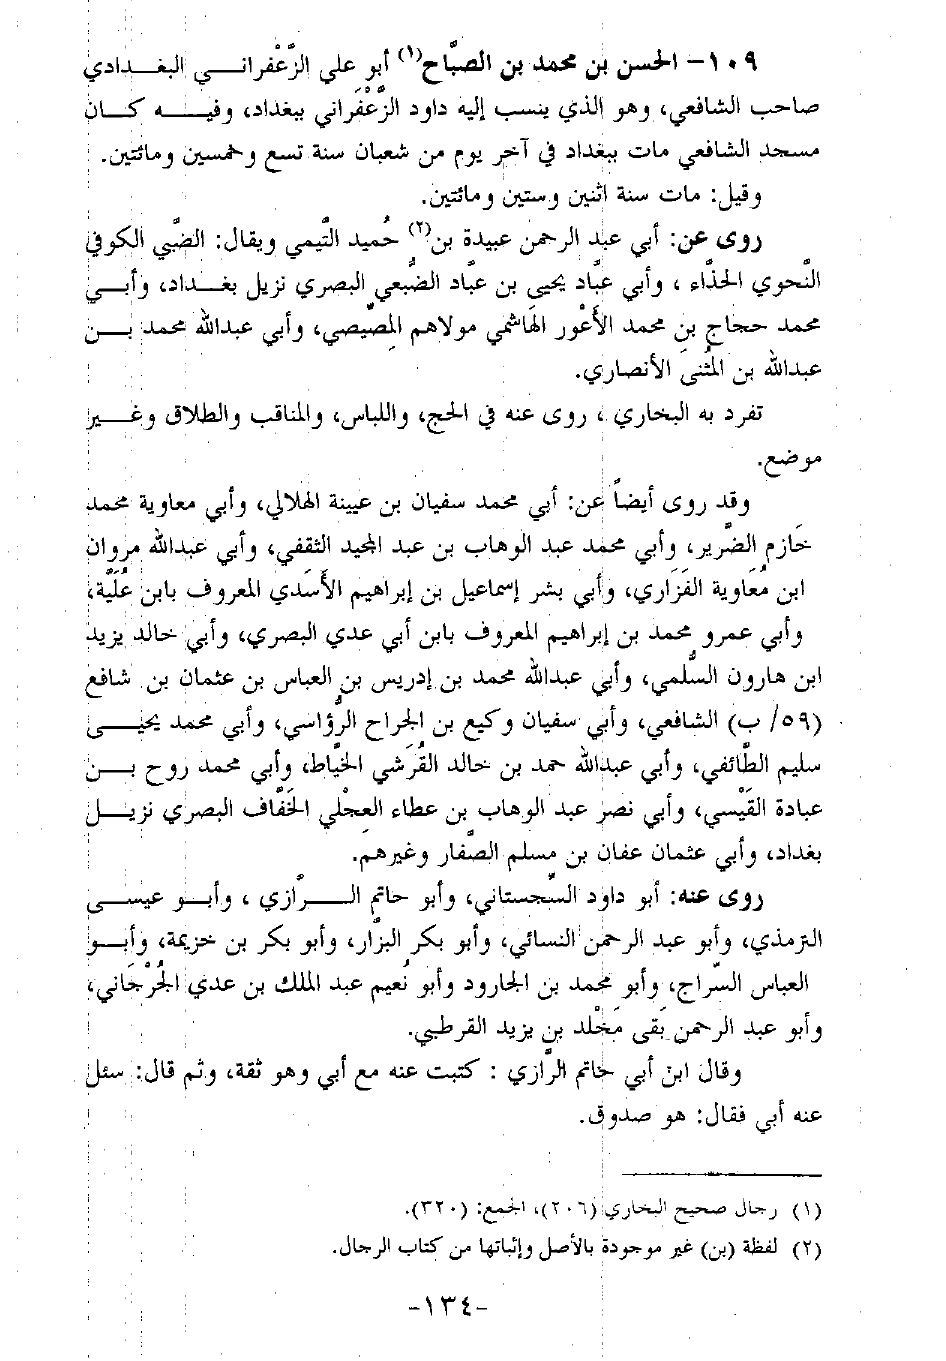 ١٠٩- الحسن بن محمد بن الصبَّاح(١) أبو علي الزَّعْفراني البغدادي
صاحب الشافعي، وهو الذي ينسب إليه داود الزَّعْفراني ببغداد، وفيه كان
مسجد الشافعي مات ببغداد في آخر يوم من شعبان سنة تسع وخمسين ومائتين.
وقيل: مات سنة اثنين وستين ومائتين.
روى عن: أبي عبد الرحمن عبيدة بن(٢) حُميد التَّيمي ويقال: الضَّبي الكوفي
النَّحوي الحذَّاء ، وأبي عبَّاد يحيى بن عبَّاد الضُّبعي البصري نزيل بغداد، وأبي
محمد حجاج بن محمد الأَعْور الهَاشمي مولاهم المِصَّيصي، وأبي عبدالله محمد بن
عبدالله بن المُثنىَ الأنصاري.
تفرد به البخاري ، روى عنه في الحج، واللباس، والمناقب والطلاق وغير
موضع.
وقد روى أيضاً عن: أبي محمد سفيان بن عيينة الهلالي، وأبي معاوية محمد
خَازم الضَّرير، وأبي محمد عبد الوهاب بن عبد المجيد الثقفي، وأبي عبدالله مروان
ابن مُعَاوية الفَزَاري، وأبي بشر إسماعيل بن إبراهيم الأَسَدي المعروف بابن عُلَيَّة،
وأبي عمرو محمد بن إبراهيم المعروف بابن أبي عدي البصري، وأبي خالد يزيد
ابن هارون السُّلمي، وأبي عبدالله محمد بن إدريس بن العباس بن عثمان بن شافع
(٥٩/ ب) الشافعي، وأبي سفيان وكيع بن الجراح الرُّؤاسي، وأبي محمد يحيى
سليم الطَّائفي، وأبي عبدالله حمد بن خالد القُرشي الخيَّاط، وأبي محمد روح بن
عبادة القَيْسي، وأبي نصر عبد الوهاب بن عطاء العِجْلي الخَفَّاف البصري نزيل
بغداد، وأبي عثمان عفان بن مسلم الصَّفار وغيرهم.
روى عنه: أبو داود السِّجستاني، وأبو حاتم الرَّازي ، وأبو عيسى
الترمذي، وأبو عبد الرحمن النسائي، وأبو بكر البزَّار، وأبو بكر بن خزيمة، وأبو
العباس السَّراج، وأبو محمد بن الجارود وأبو نُعيم عبد الملك بن عدي الجُرْجَاني،
وأبو عبد الرحمن بَقى مَخْلد بن يزيد القرطبي.
وقال ابن أبي حاتم الرَّازي : كتبت عنه مع أبي وهو ثقة، وثم قال: سئل
عنه أبي فقال: هو صدوق.
(١) رجال صحيح البخاري (٢٠٦)، الجمع: (٣٢٠).
(٢) لفظة (بن) غير موجودة بالأصل وإثباتها من كتاب الرجال.
-١٣٤-